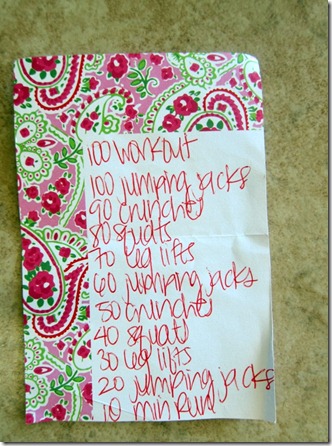 100 workout
100 jumping jacks
90 crunches
80 squats
70 leg lifts
60 jumping jacks
50 crunches
40 squats
30 leg lifts
20 jumping jacks
10 min run